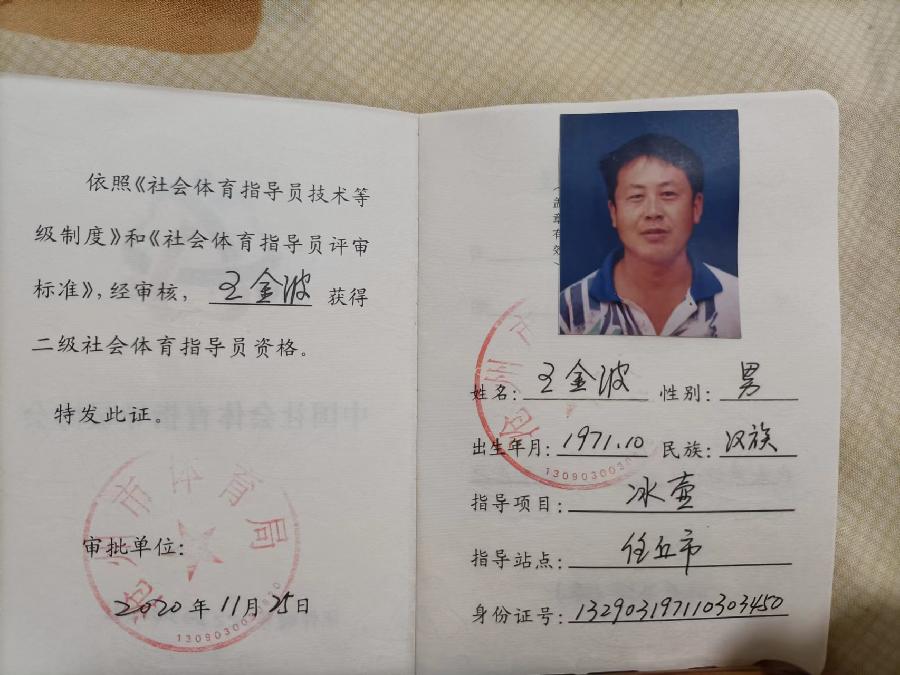 依照《社会体育指导员技术等
级制度》和《社会体育指导员评审
标准》，经审核，王金波 获得
二级社会体育指导员资格。
特发此证。
沧州市体育局
审批单位：
2020年11月25日
（盖章有效）
沧州市
姓名：王金波 性别：男
出生年月：1971.10 民族：汉族
13090300
指导项目：冰壶
指导站点：任丘市
身份证号：132903197110303450